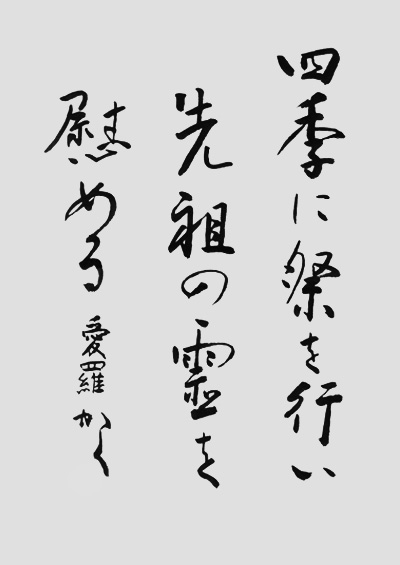 四季に祭を行い
先祖の霊を
慰める 愛羅かく